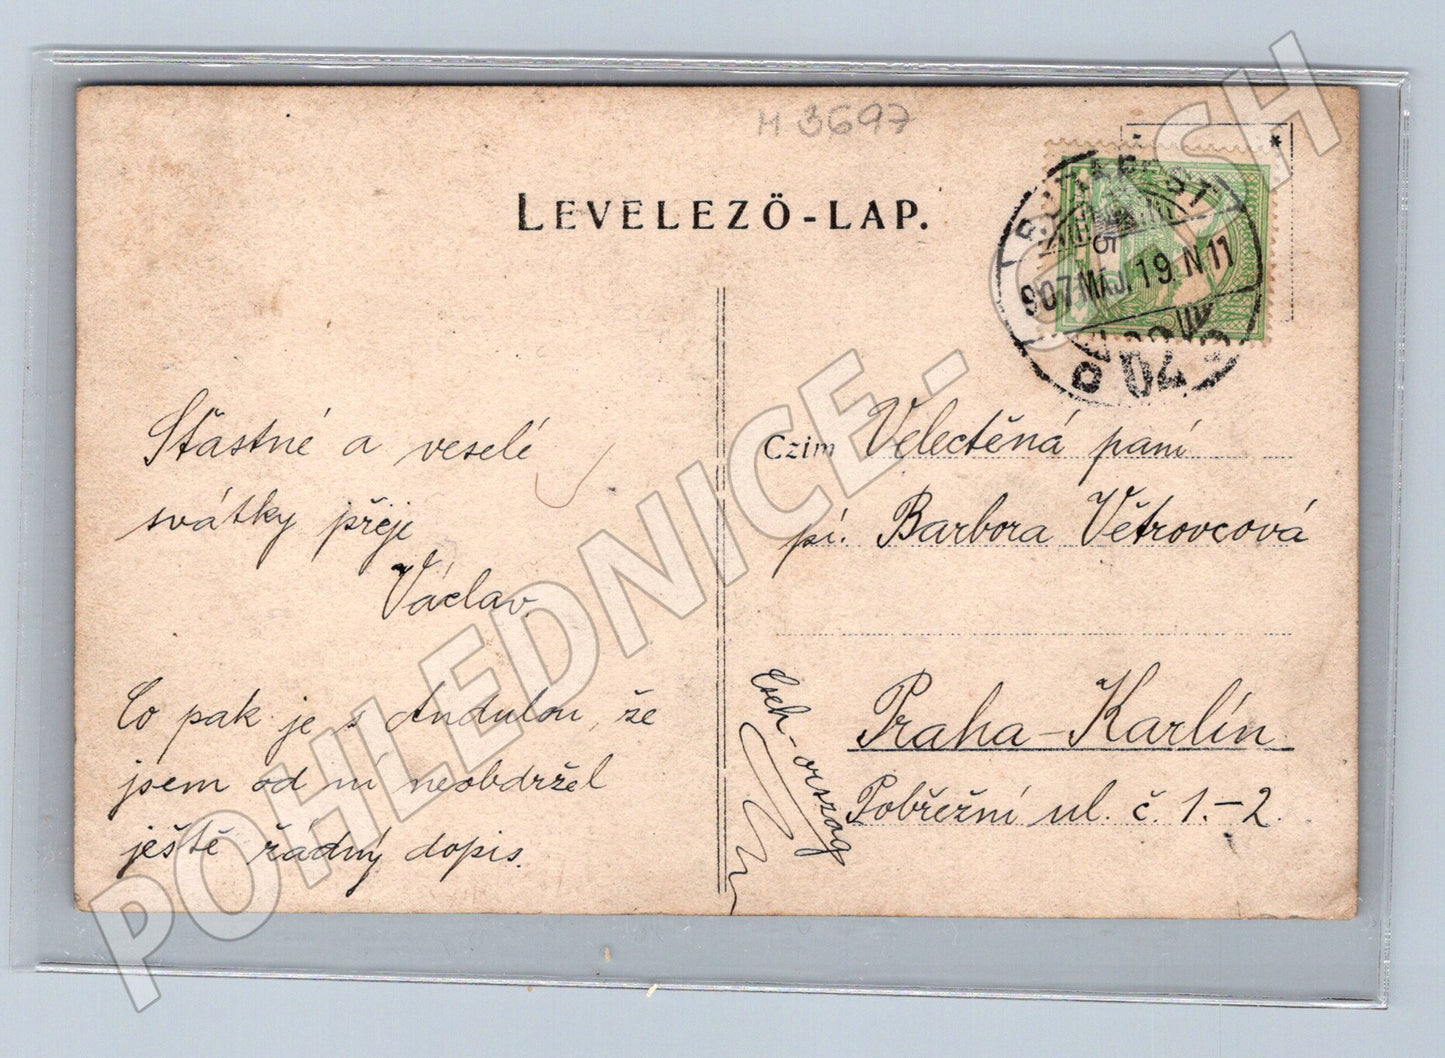 H 3697
LEVELEZŐ-LAP.
BUDAPEST
907 MÁJ. 19. N 11
Šťastné a veselé
svátky přeje
Václav.
Co pak je s Andulou, že
jsem od ní neobdržel
ještě řádný dopis.
Czim Velectěná paní
pí. Barbora Větrovcová
Praha-Karlín
Pobřežní ul. č. 1.-2.
Cseh-orszag
POHLEDNICE - SH